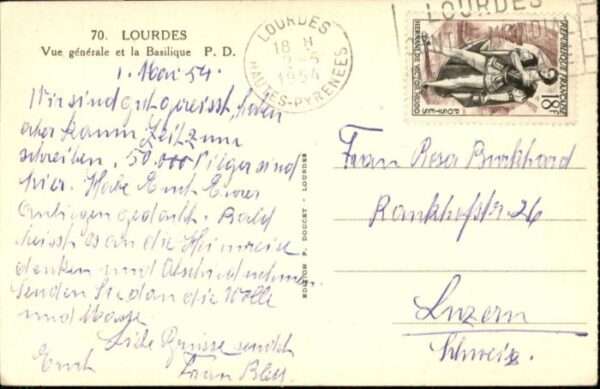 70. LOURDES
Vue générale et la Basilique P. D.
1. Mai 54.
Wir sind gut gereisst, haben
aber kaum Zeit zum
schreiben. 50.000 Pilger sind
hier. Habe Euch Eurer
Anliegen gedacht. Bald
heisst es an die Heimreise
denken und Abschied nehmen
Senden Sie dan die Wolle
und Masse.
Liebe Grüsse sendet
Euch Frau
EDITION P. DOUCET - LOURDES
LOURDES
18 H
2-5
1954
HAUTES-PYRENEES
LOURDES
REPUBLIQUE FRANÇAISE
HERNANI DE VICTOR HUGO
POSTES
18F
Frau Rosa Burkhard
26
Luzern
Schweiz.